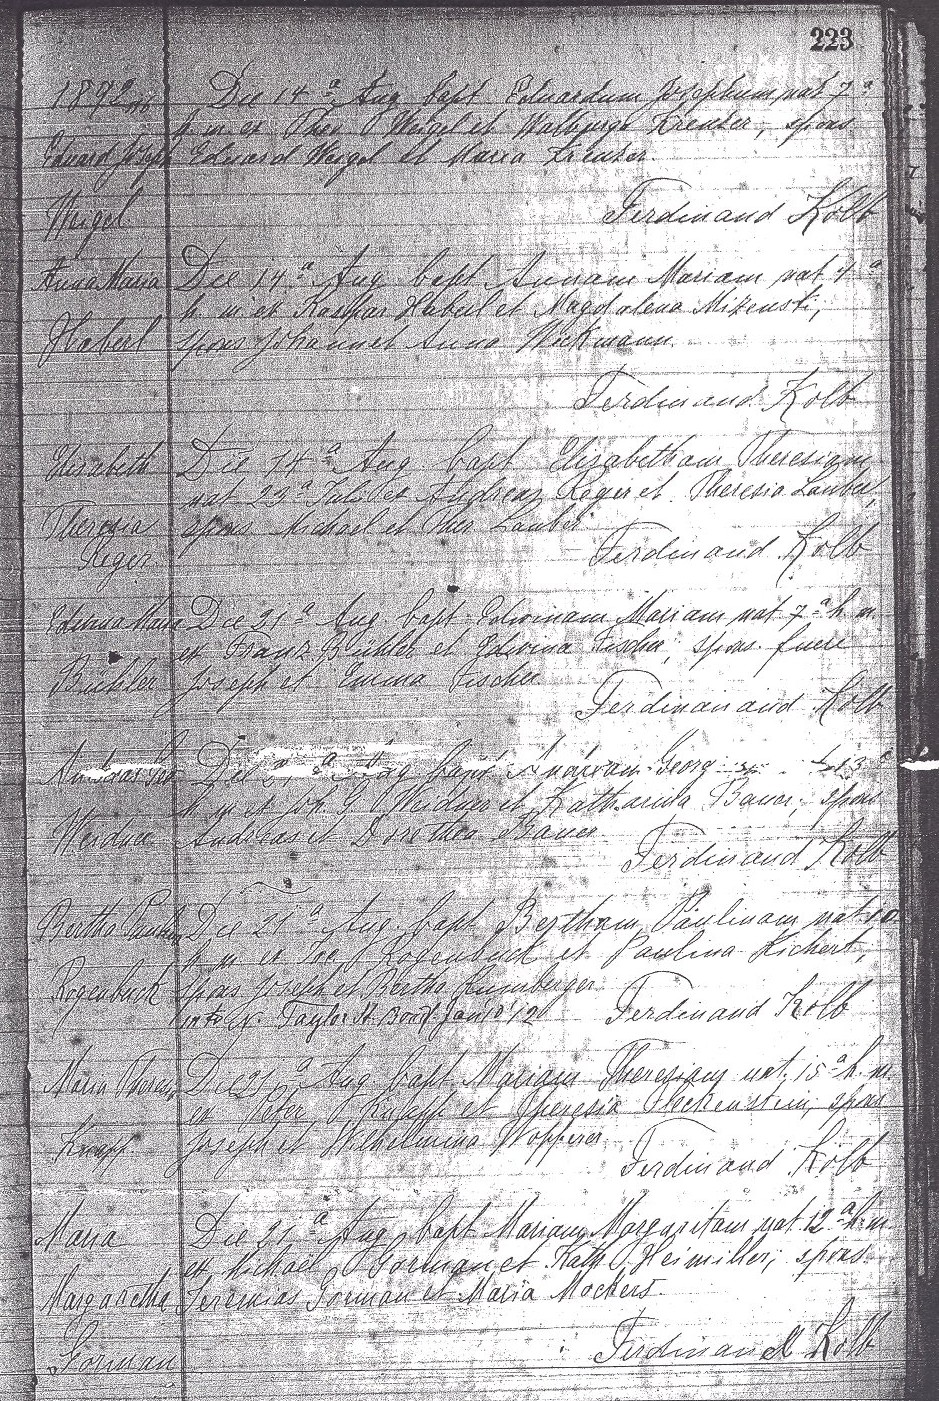 223
1892
Die 14ᵃ Aug bapt Eduardum Josephum nat 7ᵃ
h. m. ex Theo Weigel et Walburga Kreuzer, spons
Eduard Joseph Eduard Weigel et Maria Kreuzer.
Weigel
Ferdinand Kolb
Anna Maria Die 14ᵃ Aug bapt Annam Mariam nat 4ᵃ
h. m. ex Kaspar Haberl et Magdalena Mizenski,
Haberl spons Johann et Anna Weckmann.
Ferdinand Kolb
Elizabeth Die 14ᵃ Aug bapt Elizabetham Theresiam
nat 23ᵃ Juli ex Andreas Reger et Theresia Lauber,
Theresia spons Michael et Ther Lauber
Reger
Ferdinand Kolb
Edwina Maria Die 21ᵃ Aug bapt Edwinam Mariam nat 7ᵃ h. m.
ex Franz Bühler et Edwina Fischer, spons. fuere
Bühler Joseph et Emma Fischer
Ferdinand Kolb
Andreas Die 21ᵃ Aug bapt Andream Georg 13
h. m. ex G Weidner et Katharina Bauer, spons
Weidner Andreas et Dorothea Bauer
Ferdinand Kolb
Bertha Paulina Die 21ᵃ Aug. bapt Bertham Paulinam nat 10
h. m. ex Jos Rogenbuck et Paulina Kichert,
Rogenbuck spons Joseph et Bertha Nurnberger
Taylor Jan 12
Ferdinand Kolb
Maria Theresia Die 21ᵃ Aug bapt Mariam Theresiam nat. 15ᵃ h. m.
ex Peter Knapp et Theresia Fleckenstein, spons
Knapp Joseph et Wilhelmina Wopperer
Ferdinand Kolb
Maria Die 21ᵃ Aug bapt Mariam Margaritam nat 12ᵃ h. m
ex Michael Gorman et Kath Heimiller, spons.
Margaretha Jeremias Gorman et Maria Mockers.
Gorman
Ferdinand Kolb